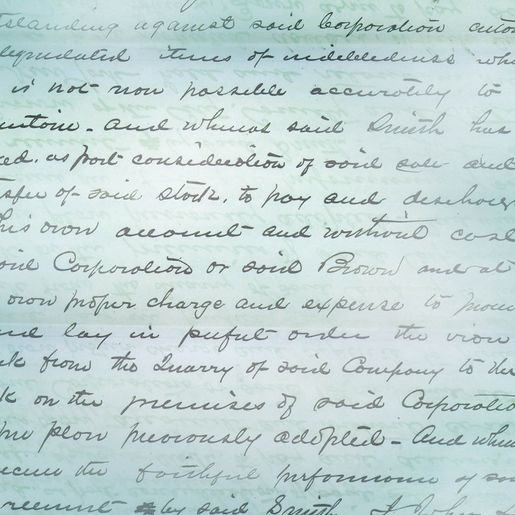 tstanding against said Corporation
items of indebtedness
is not now possible accurately to
And whereas said Smith has
ed, as part consideration of said sale and
sfer of said stock, to pay and discharg
his own account and without cost
aid Corporation or said Brown and at
own proper charge and expense to
nd lay in perfect order the iron
from the Quarry of said Company to the
k on the premises of said Corporatio
plan previously adopted - And whe
ecure the faithful performance of sa
reement by said Smith, I John